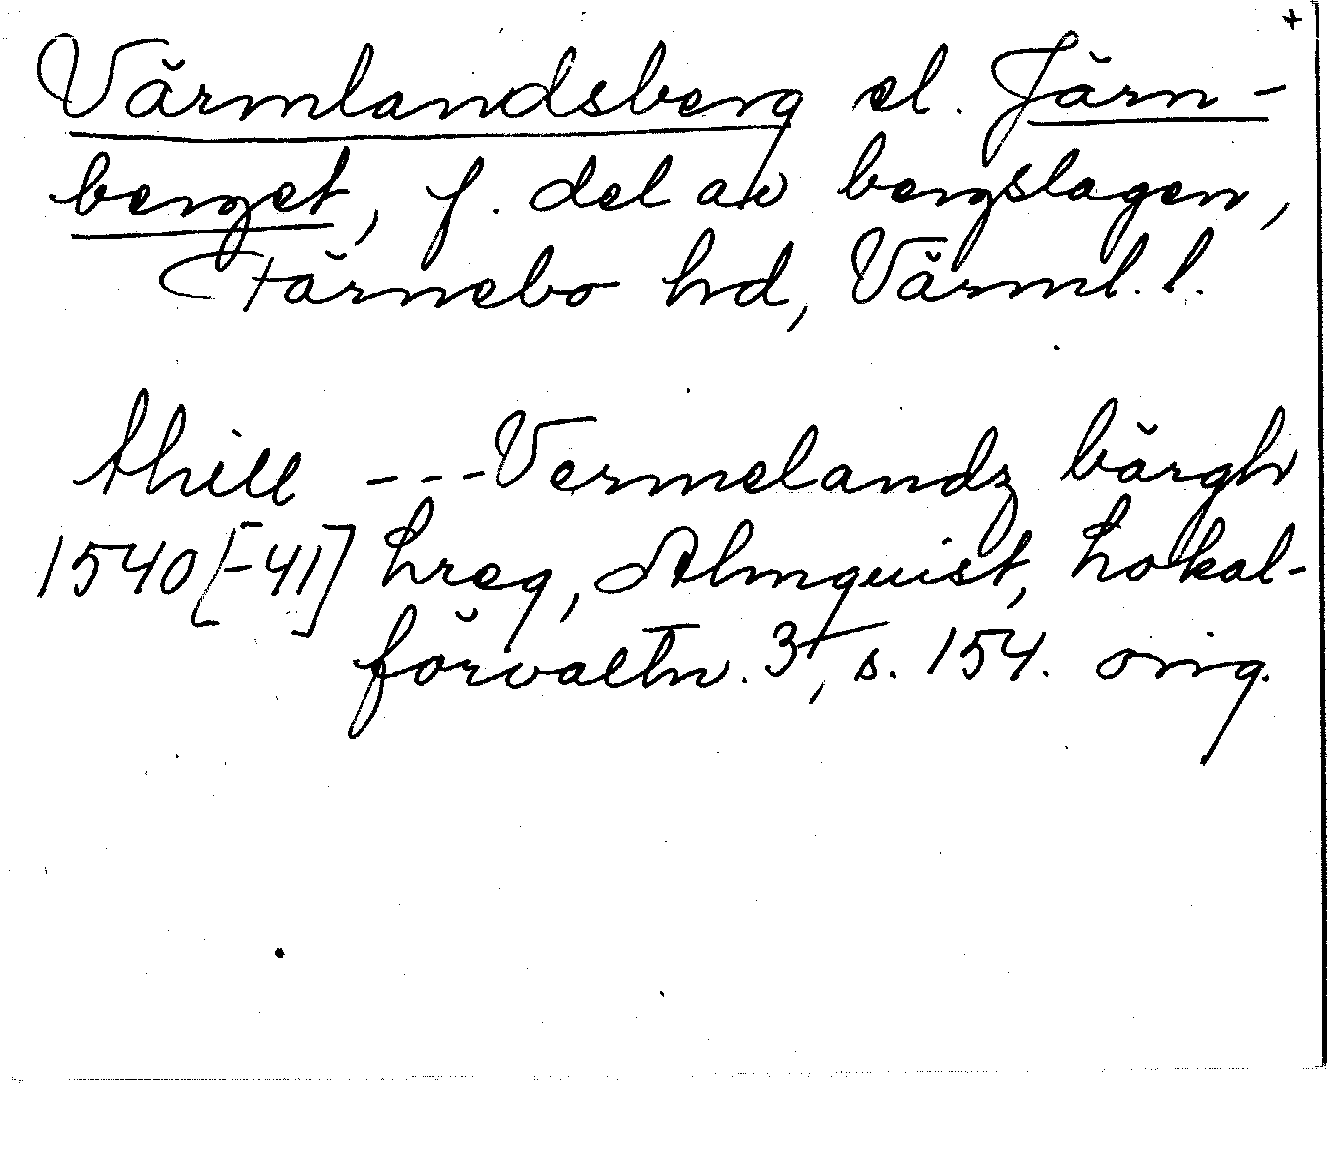 +
Värmlandsberg el. Järn-
berget, f. del av bergslagen,
Färnebo hd, Värml. l.
thill --- Vermelandz bärgh
1540[-41] hreg, Almquist, Lokal-
förvaltn. 3, s. 154. orig.